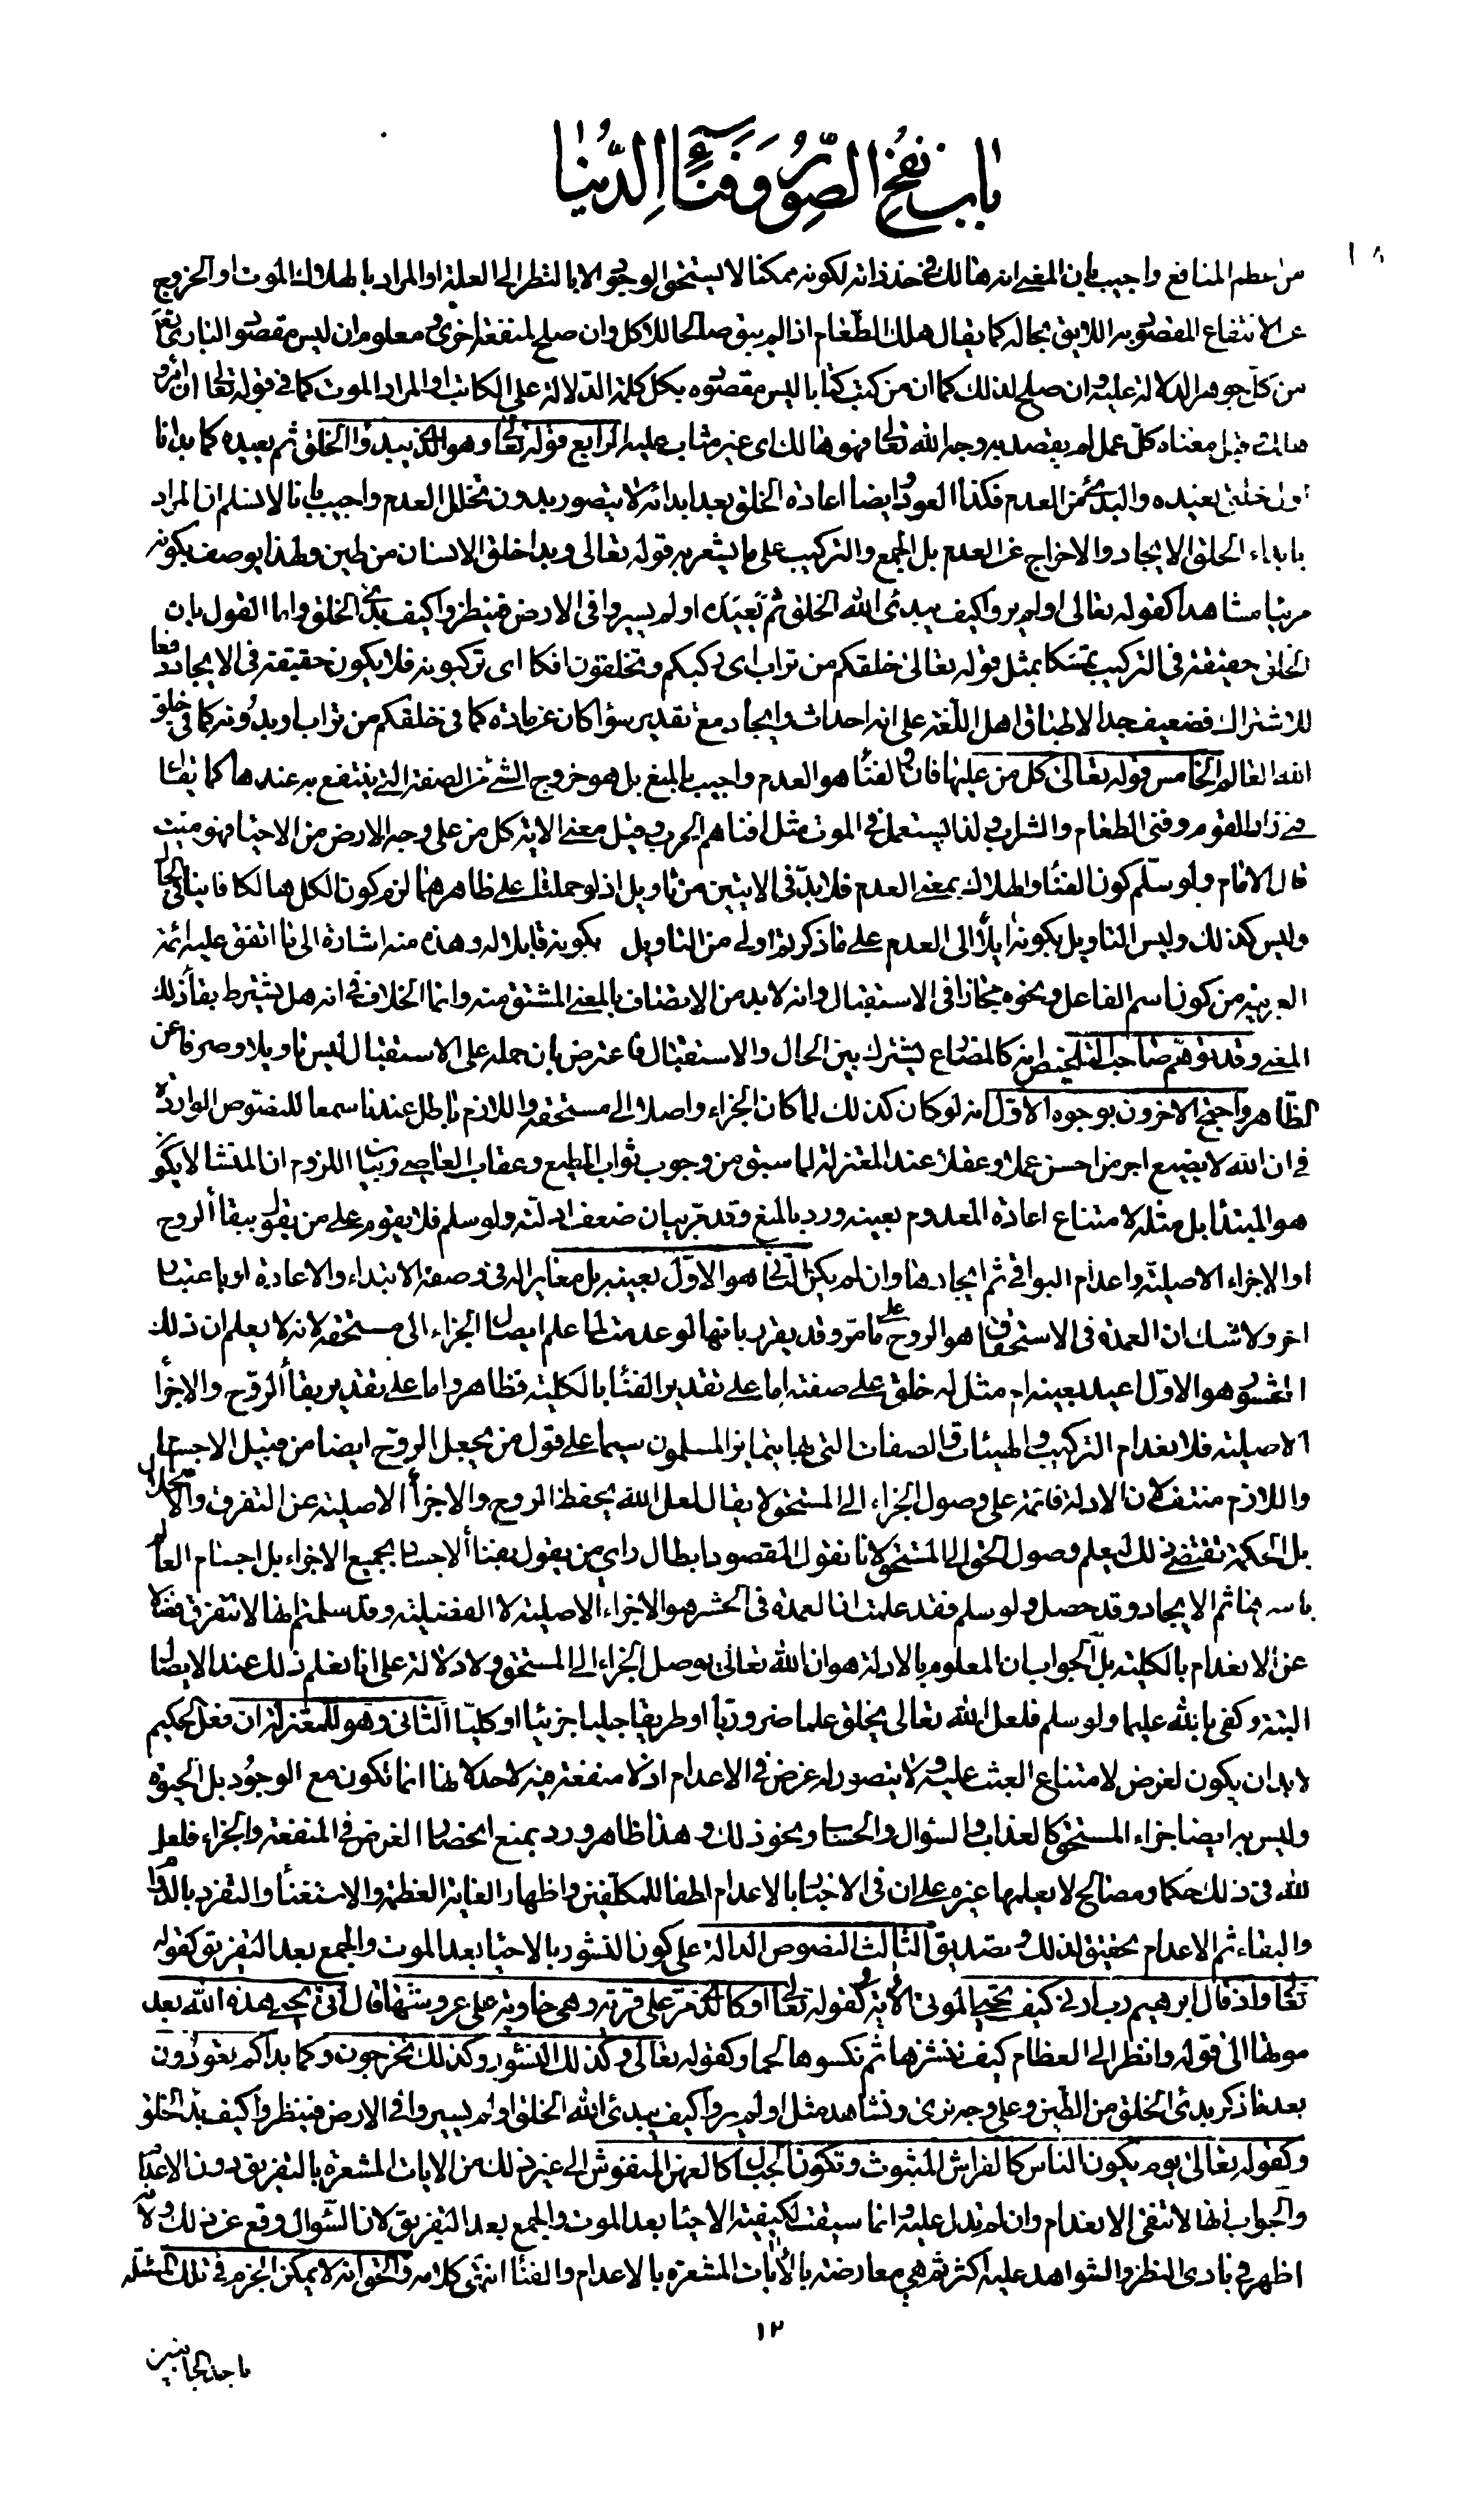 باب نفخ الصور وفناء الدنيا
١٨
من اعظم المنافع واجيب بان المعنى انه هالك في حد ذاته لكونه ممكنا لا يستحق الوجود الا بالنظر الى العلة او المراد بالهلاك الموت او الخروج
عن الانتفاع المقصود به اللايق بحاله كما يقال هلك الطعام اذا لم يبق صالحا للاكل وان صلح لمنفعة اخرى ومعلوم ان ليس مقصود الباري تعالى
من كل جوهر الدلالة عليه وان صلح لذلك كما ان من كتب كتابا ليس مقصوده بكل كلمة الدلالة على الكاتب او المراد الموت كما في قوله تعالى ان امرؤ
هلك وقيل معناه كل عمل لم يقصد به وجه الله تعالى فهو هالك اي غير مثاب عليه الرابع قوله تعالى وهو الذي يبدؤا الخلق ثم يعيده كما بدانا
اول خلق نعيده والبدئ من العدم فكذا العود وايضا اعادة الخلق بعد ابدائه لا يتصور بدون تخلل العدم واجيب بانا لا نسلم ان المراد
بابداء الخلق الايجاد والاخراج عن العدم بل الجمع والتركيب على ما يشعر به قوله تعالى وبدا خلق الانسان من طين ولهذا يوصف بكونه
مرئيا مشاهدا كقوله تعالى اولم يروا كيف يبدئ الله الخلق ثم يعيده اولم يسيروا في الارض فينظروا كيف بدئ الخلق واما القول بان
الخلق حقيقة في التركيب تمسكا بمثل قوله تعالى خلقكم من تراب اي ركبكم وتخلقون افكا اي تركبونه فلا يكون حقيقة في الايجاد دفعا
للاشتراك فضعيف جدا لاطباق اهل اللغة على انه احداث وايجاد مع تقدير سواء كان عن مادة كما في خلقكم من تراب او بدونه كما في خلق
الله العالم الخامس قوله تعالى كل من عليها فان والفناء هو العدم واجيب بالمنع بل هو خروج الشئ من الصفة التي ينتفع به عندها كما يقال
فنى زاد القوم وفنى الطعام والشراب ولذا يستعمل في الموت مثل افناهم الحرب وقيل معنى الاية كل من على وجه الارض من الاحياء فهو ميت
قال الامام ولو سلم كون الفناء والهلاك بمعنى العدم فلا بد في الايتين من تاويل اذ لو حملتا على ظاهرهما لزم كون الكل هالكا فانيا في الحال
وليس كذلك وليس التاويل بكونه ايلا الى العدم على ما ذكرتم اولى من التاويل بكونه قابلا له وهذه منه اشارة الى ما اتفق عليه ائمة
العربية من كون اسم الفاعل ونحوه مجازا في الاستقبال وانه لا بد من الاتصاف بالمعنى المشتق منه وانما الخلاف في انه هل يشترط بقاء ذلك
المعنى وقد توهم صاحب التلخيص انه كالمضارع يشترك بين الحال والاستقبال فاعترض بان حمله على الاستقبال ليس تاويلا وصرفا عن
الظاهر واحتج الاخرون بوجوه الاول انه لو كان كذلك لما كان الجزاء واصلا الى مستحقه واللازم باطل عندنا سمعا للنصوص الواردة
في ان الله لا يضيع اجر من احسن عملا وعقلا عند المعتزلة لما سبق من وجوب ثواب المطيع وعقاب العاصي وبيان اللزوم ان المنشا لا يكون
هو المبتدأ بل مثله لامتناع اعادة المعدوم بعينه ورد بالمنع وقد مر بيان ضعف ادلته ولو سلم فلا يقوم على من يقول ببقاء الروح
او الاجزاء الاصلية واعدام البواقي ثم ايجادها وان لم يكن الثاني هو الاول بعينه بل مغايرا له في وصف الابتداء والاعادة او باعتبار
اخر ولا شك ان العمدة في الاستحقاق هو الروح على ما مر وقد يقرر بانها لو عدمت لما علم ايصال الجزاء الى مستحقه لانه لا يعلم ان ذلك
المحشور هو الاول اعيد بعينه ام مثل له خلق على صفته اما على تقدير الفناء بالكلية فظاهر واما على تقدير بقاء الروح والاجزاء
الاصلية فلانعدام التركيب والهيئات والصفات التي بها يتمايز المسلمون سيما على قول من يجعل الروح ايضا من قبيل الاجسام
واللازم منتف لان الادلة قائمة على وصول الجزاء الى المستحق لا يقال لعل الله يحفظ الروح والاجزاء الاصلية عن التفرق والانحلال
بل الحكمة تقتضي ذلك ليعلم وصول الحق الى المستحق لانا نقول المقصود ابطال راي من يقول بفناء الاجساد بجميع الاجزاء بل اجسام العالم
باسرها ثم الايجاد وقد حصل ولو سلم فقد علمت ان العمدة في الحشر هو الاجزاء الاصلية لا الفضلية وقد سلمتم انها لا تتفرق فضلا
عن الانعدام بالكلية بل الجواب ان المعلوم بالادلة هو ان الله تعالى يوصل الجزاء الى المستحق ولا دلالة على انا نعلم ذلك عند الايصال
البتة وكفى بالله عليما ولو سلم فلعل الله تعالى يخلق علما ضروريا او طريقا جليا جزئيا او كليا الثاني وهو للمعتزلة ان فعل الحكيم
لا بد ان يكون لغرض لامتناع العبث عليه ولا يتصور له غرض في الاعدام اذ لا منفعة فيه لاحد لانها انما تكون مع الوجود بل الحيوة
وليس به ايضا جزاء المستحق كالعذاب والسؤال والحساب ونحو ذلك وهذا ظاهر ورد بمنع انحصار الغرض في المنفعة والجزاء فلعل
لله في ذلك حكما ومصالح لا يعلمها غيره على ان في الاخبار بالاعدام لطفا للمكلفين واظهارا لغاية العظمة والاستغناء والتفرد بالدوام
والبقاء ثم الاعدام تحقيق لذلك وتصديق الثالث النصوص الدالة على كون النشور بالاحياء بعد الموت والجمع بعد التفريق كقوله
تعالى واذ قال ابرهيم رب ارني كيف تحيي الموتى الاية وكقوله تعالى او كالذي مر على قرية وهي خاوية على عروشها قال انى يحيي هذه الله بعد
موتها الى قوله وانظر الى العظام كيف ننشزها ثم نكسوها لحما وكقوله تعالى وكذلك النشور وكذلك تخرجون وكما بداكم تعودون
بعد ما ذكر بدئ الخلق من الطين وعلى وجه نرى ونشاهد مثل اولم يروا كيف يبدئ الله الخلق اولم يسيروا في الارض فينظروا كيف بدا الخلق
وكقوله تعالى يوم يكون الناس كالفراش المبثوث وتكون الجبال كالعهن المنفوش الى غير ذلك من الايات المشعرة بالتفريق دون الاعدام
والجواب انها لا تنفي الانعدام وان لم تدل عليه وانما سيقت لكيفية الاحياء بعد الموت والجمع بعد التفريق لان السؤال وقع عن ذلك ولانه
اظهر في بادي النظر والشواهد عليه اكثر ثم هي معارضة بالايات المشعرة بالاعدام والفناء انتهى كلامه والحق انه لا يمكن الجزم في تلك المسئلة
١٢
باحد الجانبين